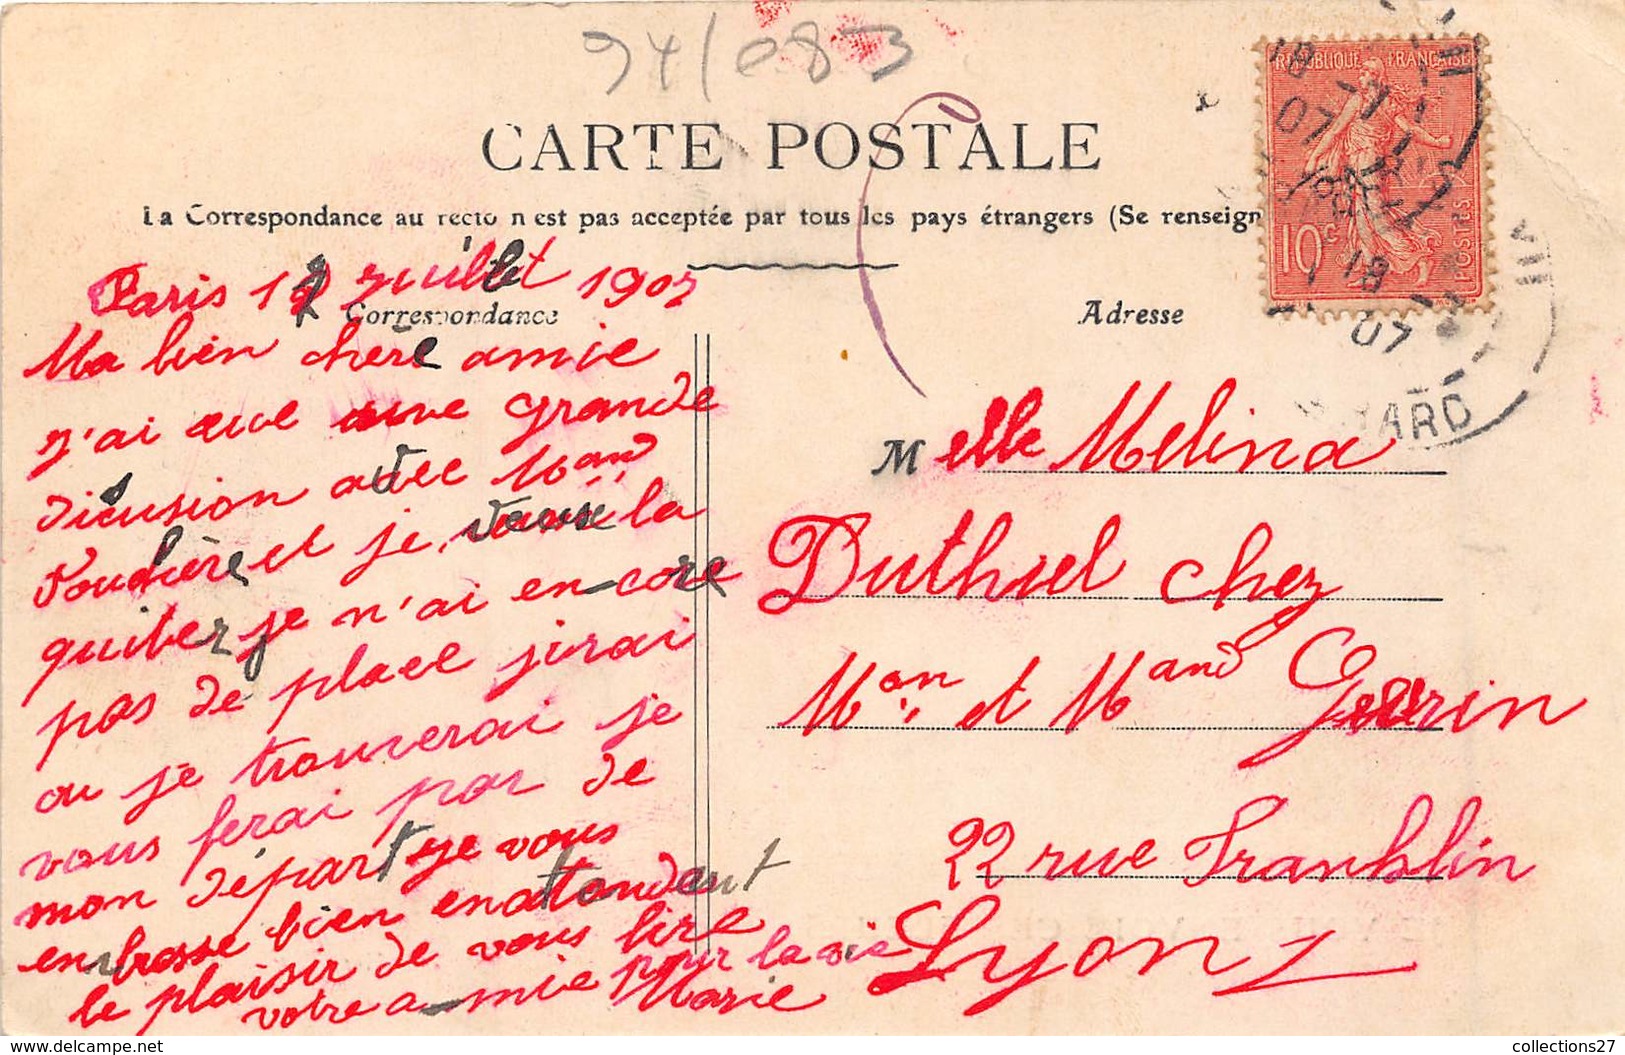 94/083
CARTE POSTALE
La Correspondance au recto n'est pas acceptée par tous les pays étrangers (Se renseign
REPUBLIQUE FRANÇAISE
10c
POSTES
18 -7 07
18 -7 07
Correspondance
Adresse
Paris 17 Juillet 1907
Ma bien chère amie
j'ai eue une grande
discusion avec Mand
et je veux la
quiter je n'ai en-core
pas de place jirai
ou je trouverai je
vous ferai par de
mon départ je vous
embrasse bien en attendant
le plaisir de vous lire
votre a-mie pour la vie
Marie
Melle Melina
Duthiel chez
Mon et Mand Guerin
22 rue Franklin
Lyon
delcampe.net
collections27